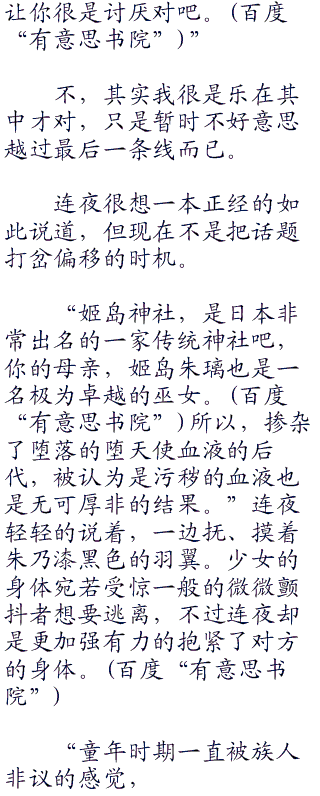 让你很是讨厌对吧。(百度
“有意思书院”)”
不，其实我很是乐在其
中才对，只是暂时不好意思
越过最后一条线而已。
连夜很想一本正经的如
此说道，但现在不是把话题
打岔偏移的时机。
“姬岛神社，是日本非
常出名的一家传统神社吧，
你的母亲，姬岛朱璃也是一
名极为卓越的巫女。(百度
“有意思书院”)所以，掺杂
了堕落的堕天使血液的后
代，被认为是污秽的血液也
是无可厚非的结果。”连夜
轻轻的说着，一边抚、摸着
朱乃漆黑色的羽翼。少女的
身体宛若受惊一般的微微颤
抖者想要逃离，不过连夜却
是更加强有力的抱紧了对方
的身体。(百度“有意思书
院”)
“童年时期一直被族人
非议的感觉，